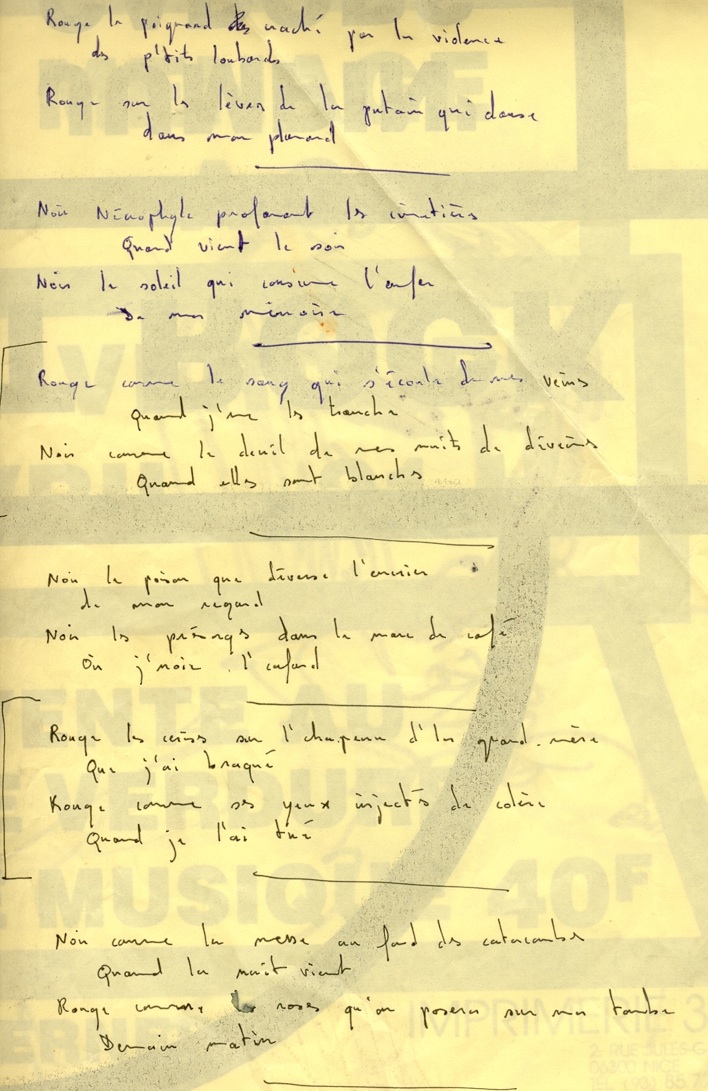 Rouge le poignard craché par la violence
des p'tits loubards
Rouge sur les lèvres de la putain qui danse
dans mon plumard
Noir Nécrophyle profanant les cimetières
Quand vient le soir
Noir le soleil qui consume l'enfer
De ma mémoire
Rouge comme le sang qui s'écoule de mes veines
Quand j'me les tranche
Noir comme le deuil de mes nuits de déveines
Quand elles sont blanches
Noir le poison que déverse l'encrier
de mon regard
Noir les présages dans le marc de café
Où j'noie l'cafard
Rouge les cerises sur l'chapeau d'la grand-mère
Que j'ai braqué
Rouge comme ses yeux injectés de colère
Quand je l'ai tué
Noir comme la messe au fond des catacombes
Quand la nuit vient
Rouge comme les roses qu'on posera sur ma tombe
Demain matin
BOCK
ENTE AU
VERDURE
MUSIQUE 40F
IMPRIMERIE 3
2 RUE JULES G
06300 NICE